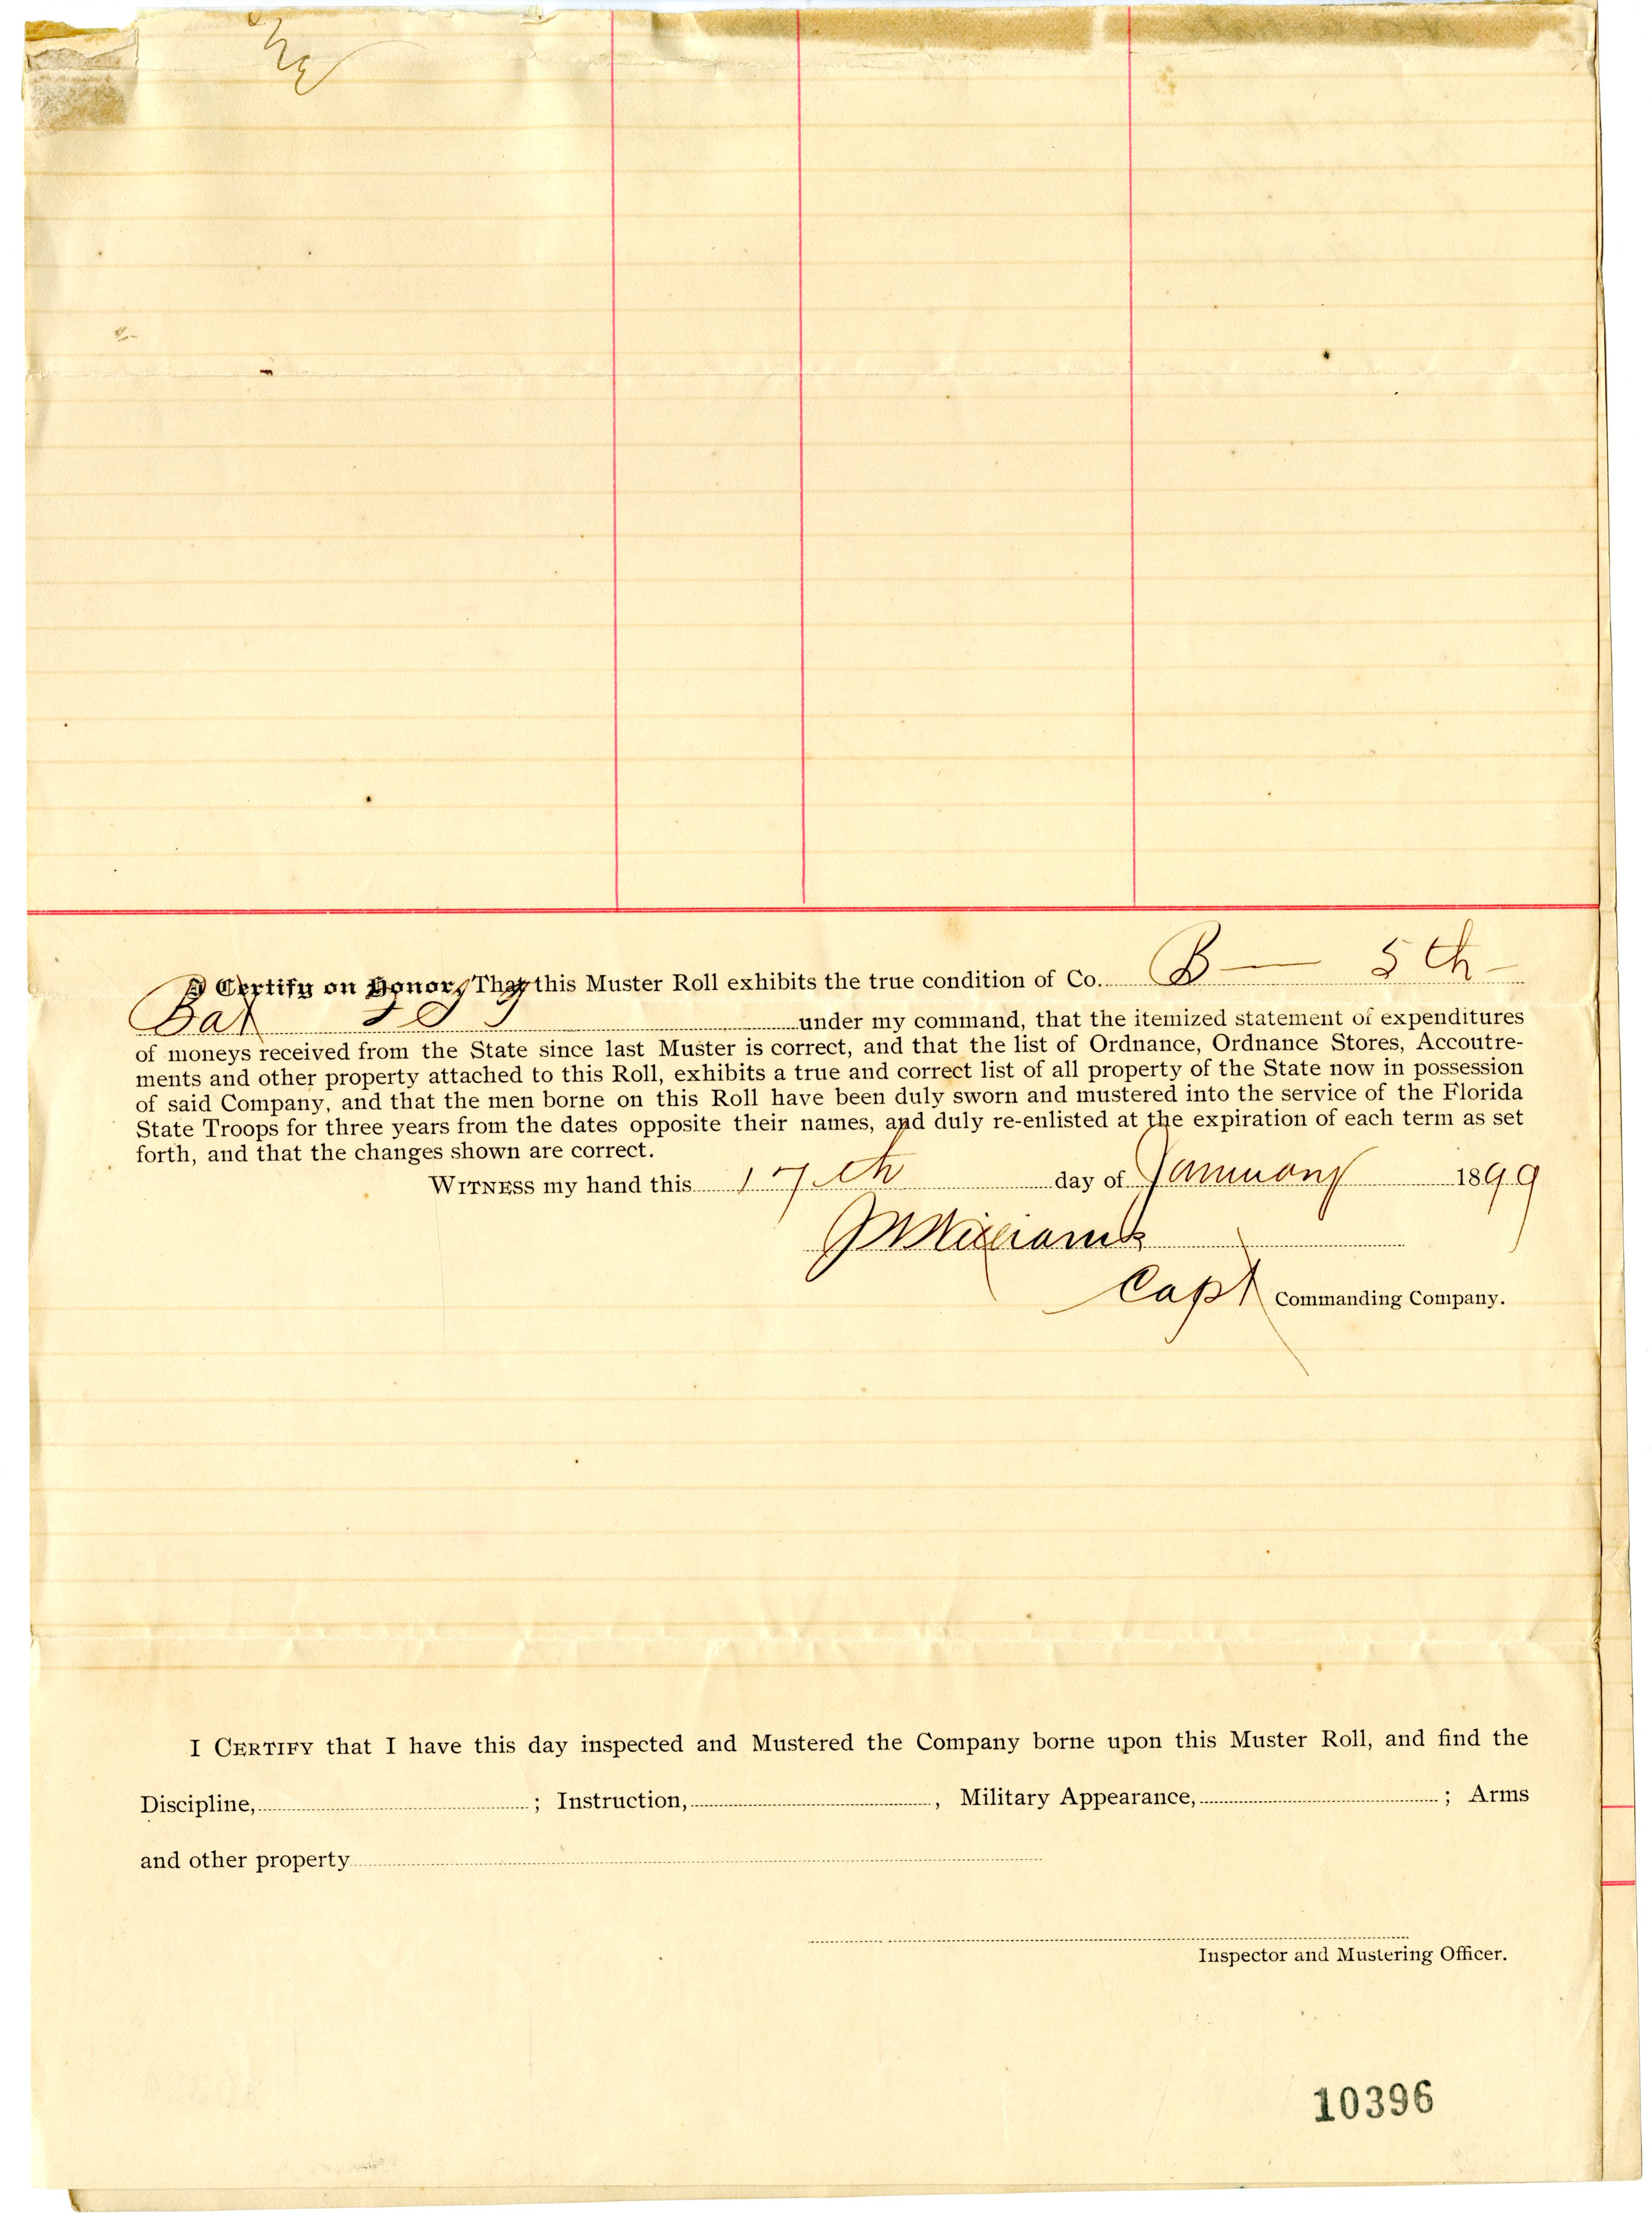 I Certify on Honor, That this Muster Roll exhibits the true condition of Co. B — 5th
Bat under my command, that the itemized statement of expenditures
of moneys received from the State since last Muster is correct, and that the list of Ordnance, Ordnance Stores, Accoutre-
ments and other property attached to this Roll, exhibits a true and correct list of all property of the State now in possession
of said Company, and that the men borne on this Roll have been duly sworn and mustered into the service of the Florida
State Troops for three years from the dates opposite their names, and duly re-enlisted at the expiration of each term as set
forth, and that the changes shown are correct.
WITNESS my hand this 17th day of January 1899
Williams
Capt Commanding Company.
I CERTIFY that I have this day inspected and Mustered the Company borne upon this Muster Roll, and find the
Discipline, ; Instruction, , Military Appearance, ; Arms
and other property
Inspector and Mustering Officer.
10396